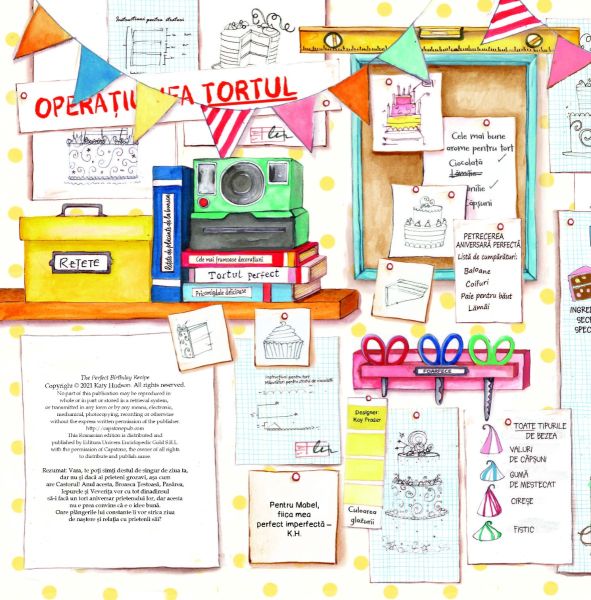 Instrucțiuni pentru straturi
OPERAȚIUNEA TORTUL
Cele mai bune
arome pentru tort
Ciocolată
Lămâie
Vanilie
Căpșuni
PETRECEREA
ANIVERSARĂ PERFECTĂ
Listă de cumpărături:
Baloane
Coifuri
Paie pentru băut
Lămâi
REȚETE
Rețete de plăcinte de la bunica
Cele mai frumoase decorațiuni
Tortul perfect
Pricomigdale delicioase
INGRE
SEC
SPEC
The Perfect Birthday Recipe
Copyright © 2021 Katy Hudson. All rights reserved.
No part of this publication may be reproduced in
whole or in part or stored in a retrieval system,
or transmitted in any form or by any means, electronic,
mechanical, photocopying, recording or otherwise
without the express written permission of the publisher.
http://capstonepub.com
This Romanian edition is distributed and
published by Editura Univers Enciclopedic Gold S.R.L.
with the permission of Capstone, the owner of all rights
to distribute and publish same.
Rezumat: Vara, te poți simți destul de singur de ziua ta,
dar nu și dacă ai prieteni grozavi, așa cum
are Castorul! Anul acesta, Broasca Țestoasă, Pasărea,
Iepurele și Veverița vor cu tot dinadinsul
să-i facă un tort aniversar prietenului lor, dar acesta
nu e prea convins că e o idee bună.
Oare plângerile lui constante îi vor strica ziua
de naștere și relația cu prietenii săi?
Instrucțiuni pentru tort:
FOARFECE
Designer:
Kay Fraser
Culoarea
glazurii
Pentru Mabel,
fiica mea
perfect imperfectă –
K.H.
TOATE TIPURILE
DE BEZEA
VALURI
DE CĂPȘUNI
GUMĂ
DE MESTECAT
CIREȘE
FISTIC